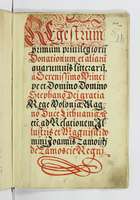 Regestrum
primum privilegiorū
Donationum, et aliarū
quarumvis literarū,
a Serenissimo Princi
pe et Domino Domino
Stephano Dei gratia
Rege Poloniæ Mag
no Duce Lithuaniæ
etc̄ ad Relationem Il
lustris et Magnifici do
mini Joannis Zamoisci
de Zamoscie Regni